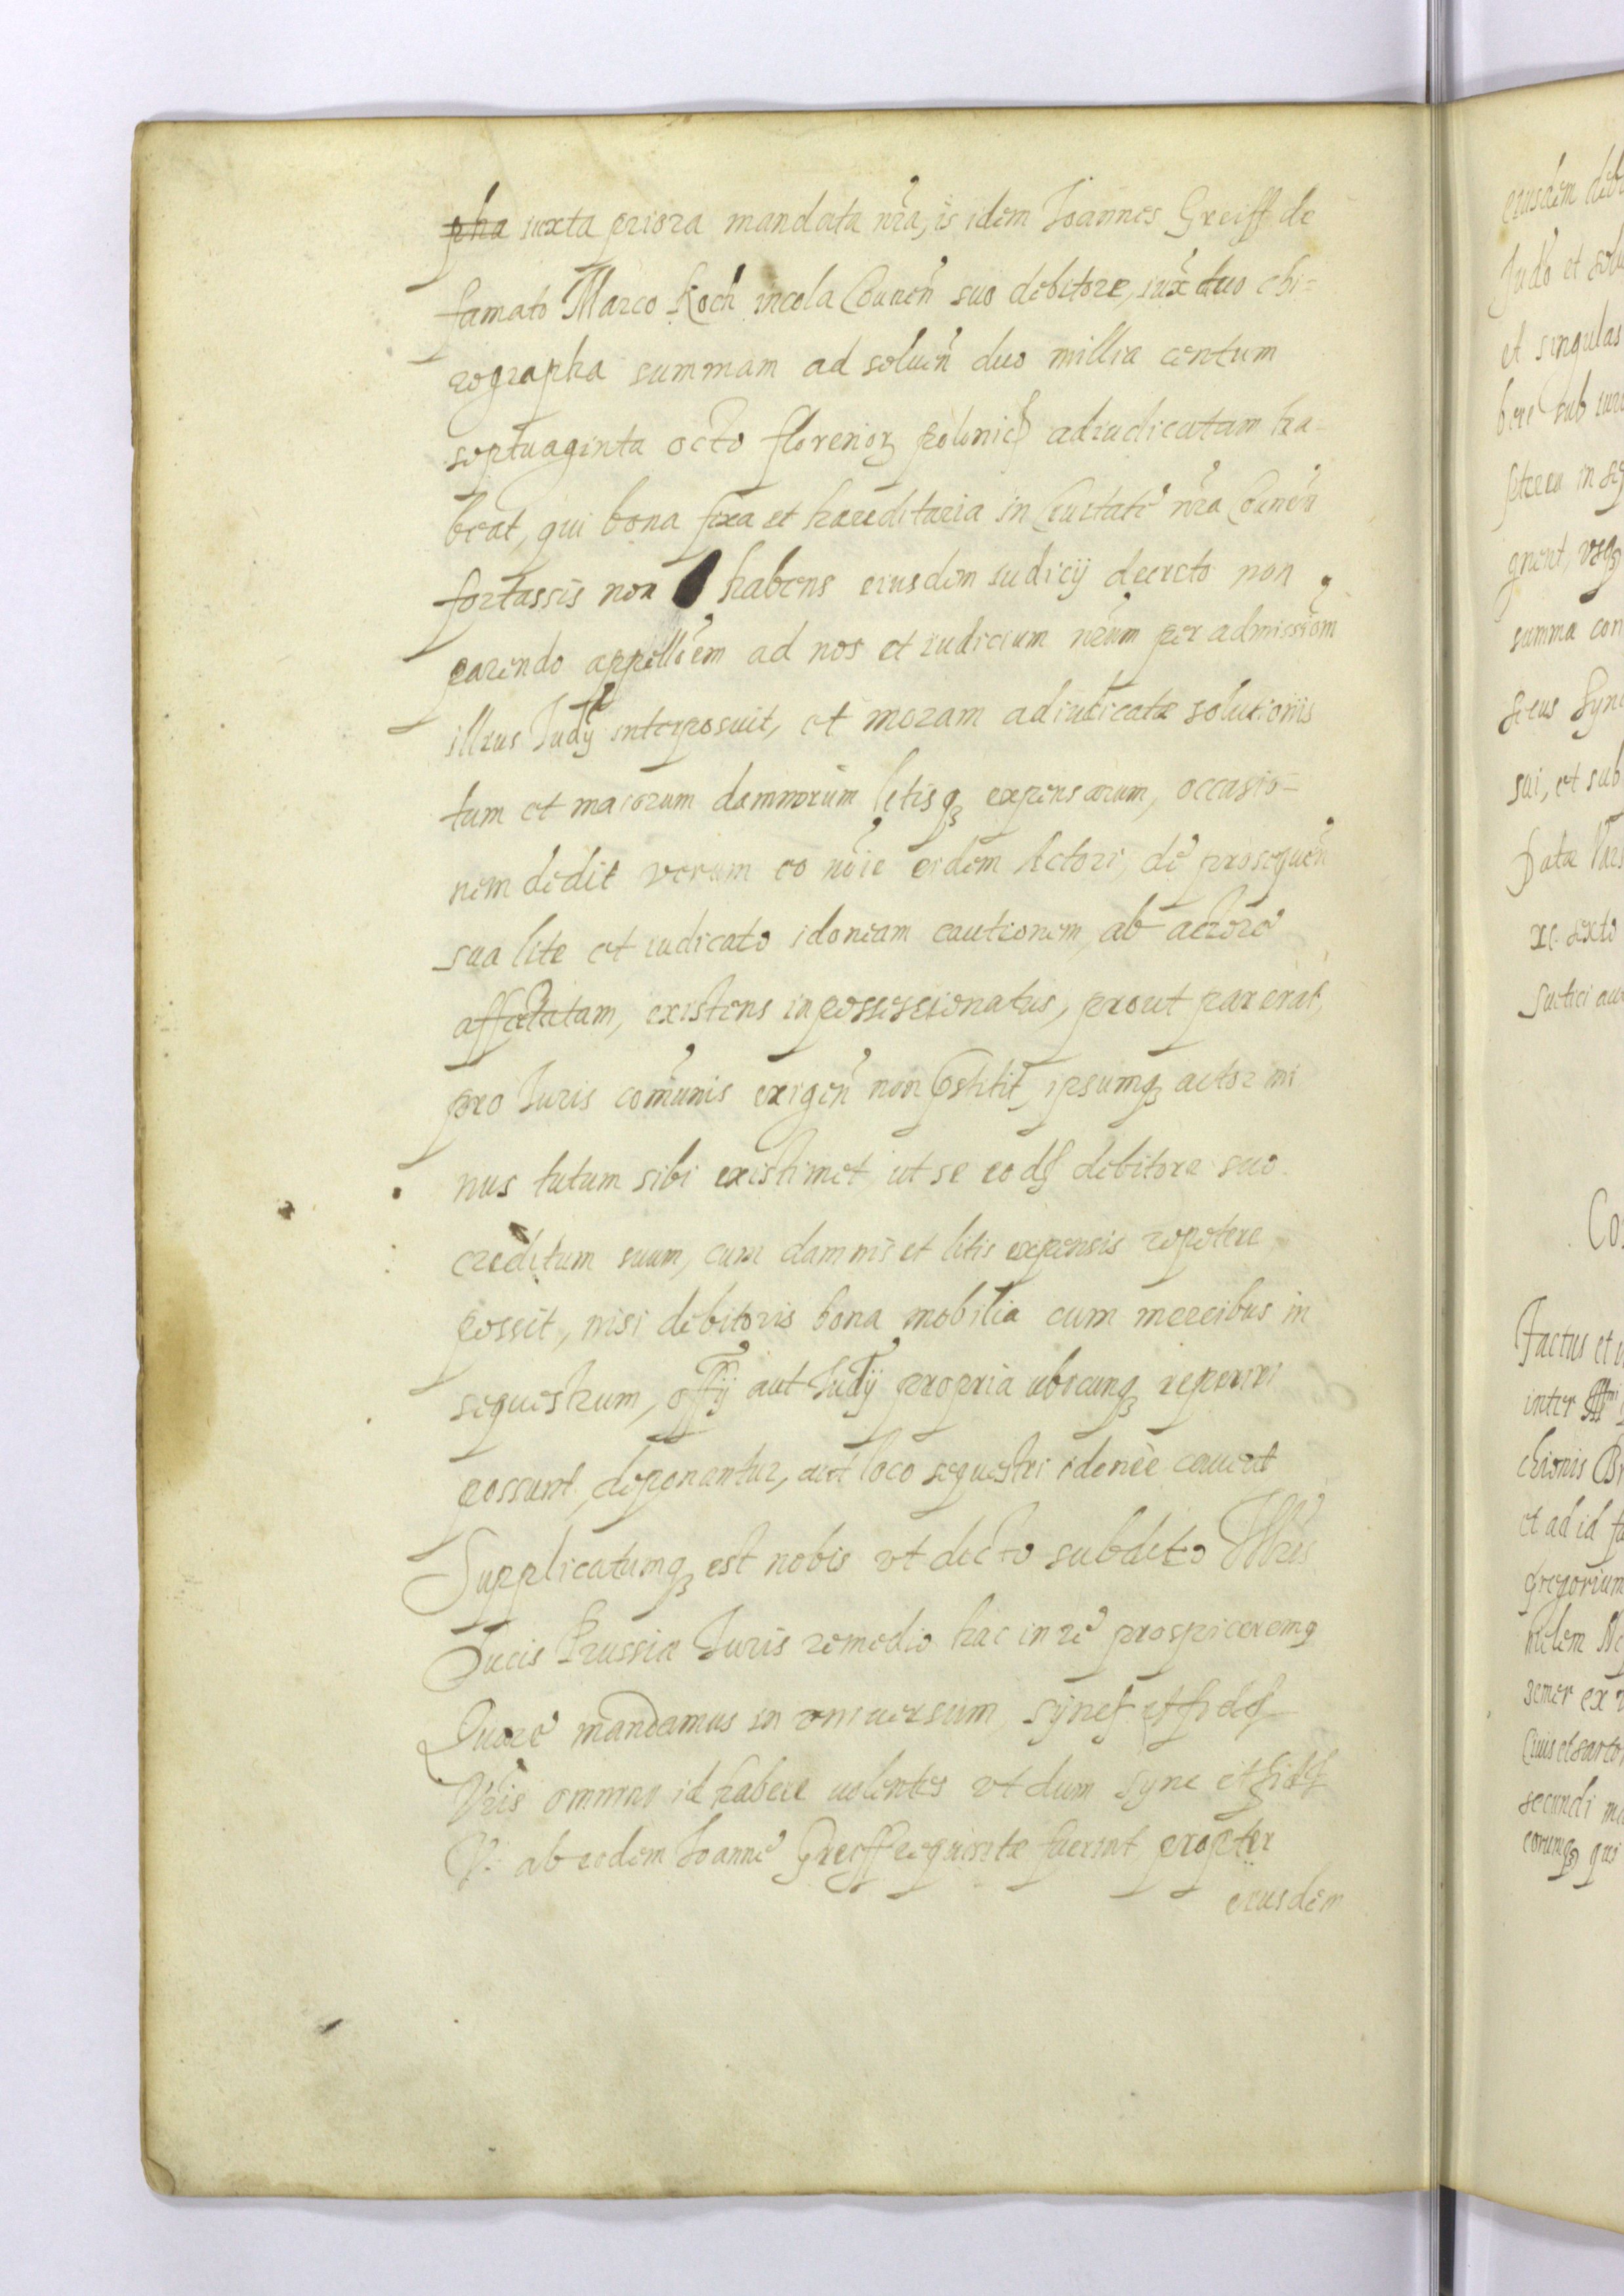 pha iuxta priora mandata nrã, is idem Joannes Greiff de
famato Marco Koch incola Caunen̄ suo debitore, iux̃ duo chi=
rographa summam ad soluen̄ duo millia centum
septuaginta octo florenoꝝ polonic̄ adiudicatam ha-
beat, qui bona fixa et haereditaria in Ciuitate nrã Caunen̄
fortassis non habens eiusdem iudicij decreto non
parendo appellõem ad nos et iudicium nrūm per admissiõm
illius Judij interposuit, et moram adiudicatae solutionis
tum et maiorum damnorum litisqꝫ expensarum, occasio-
nem dedit verum eo nõie eidem Actori, de prosequen̄
sua lite et iudicato idoneam cautionem, ab actore
affectatam, existens inpossessionatus, prout par erat,
pro Juris com̄unis exigen̄ non prestitit, ipsumqꝫ actor mi
nus tutum sibi existimet ut se eod̄ debitore suo
creditum suum, cum damnis et litis expensis repetere
possit, nisi debitoris bona mobilia cum mercibus in
sequestrum, offij aut Judij propria ubicunqꝫ reperiri
possunt, deponantur, aut loco sequestri idoneè caueat
Supplicatumqꝫ est nobis vt dicto subdito Illris
Ducis Prussiae Juris remedio hac in re prospiceremꝗ
Quare mandamus in vniuersum, Sync̄ et fid̄
Vris omnino id habere uolentes vt dum Sync et fid̄
V. ab eodem Joanne Greiff requisitae fuerint propter
eiusdem
ejusdem
Judo et
et singulas
bere sub
pterea in
gnent, vsqꝫ
summa con
secus Sync
sui, et sub
Datae
xc. sexto
Suetici
Co
Factus et
inter
chionis
et ad id
Gregorium
semer ex
Ciuis et sarto
secundi
corumqꝫ qui